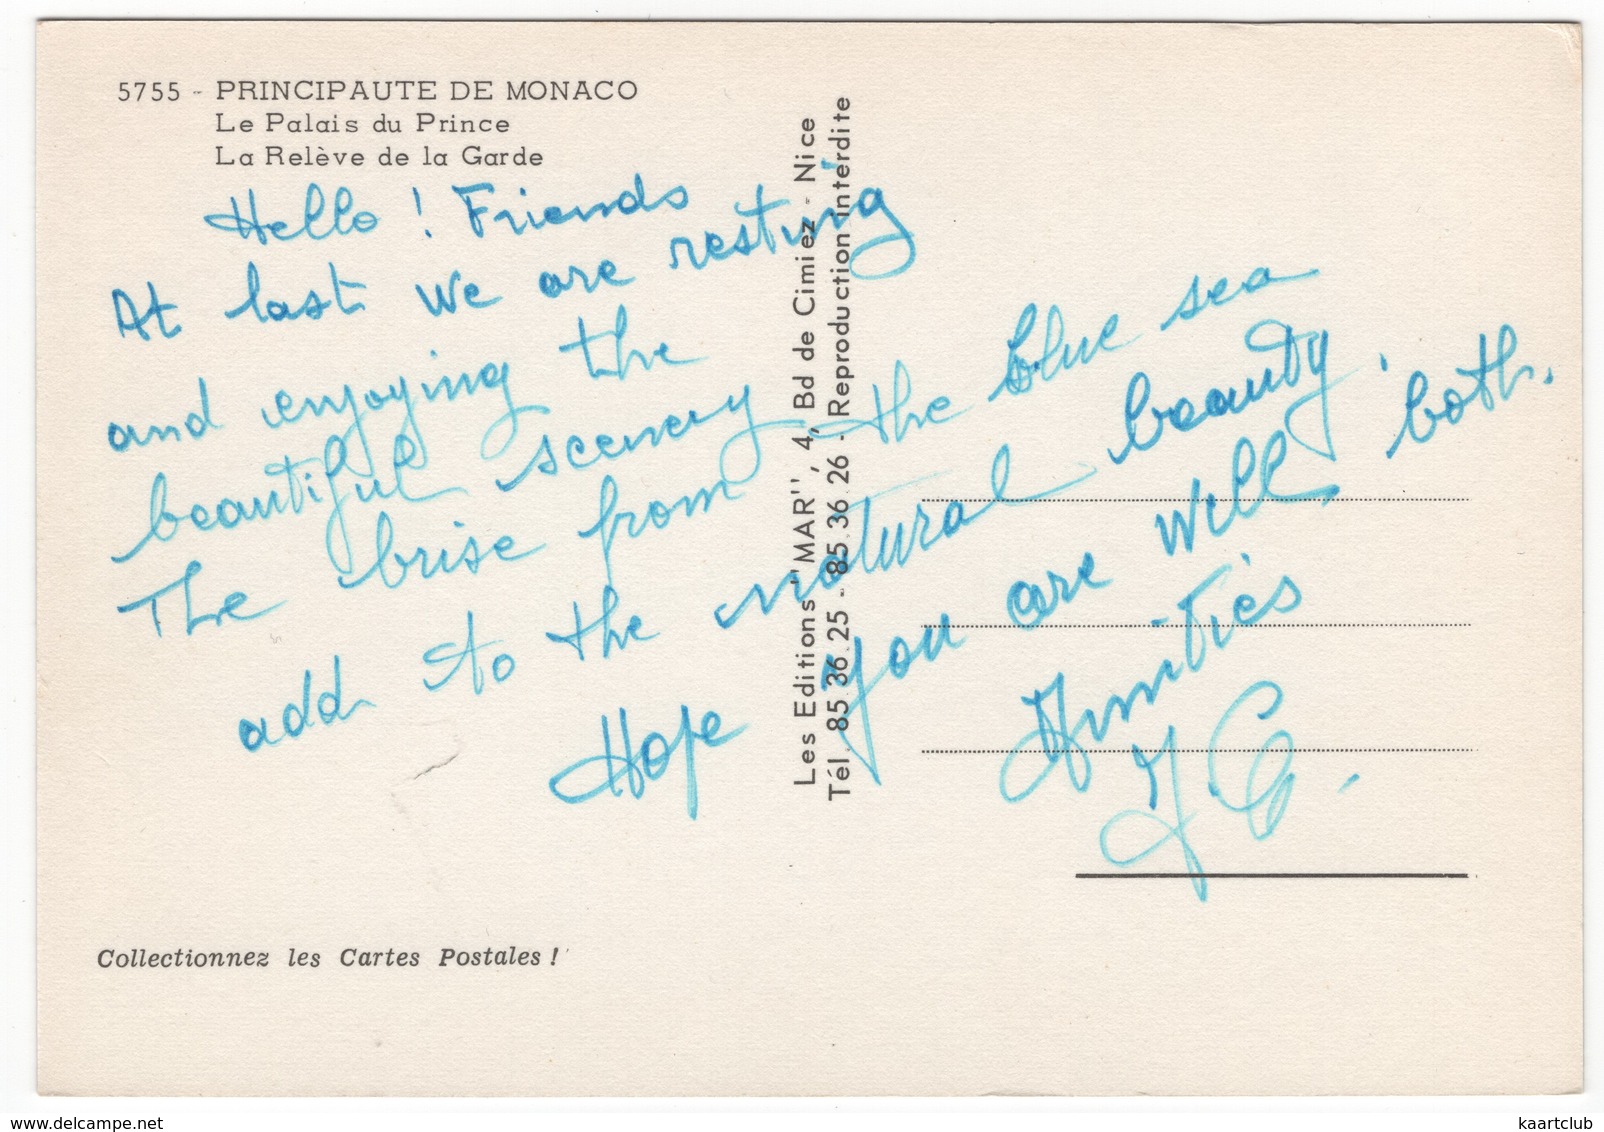 5755 - PRINCIPAUTE DE MONACO
Le Palais du Prince
La Relève de la Garde
Hello! Friends
At last we are resting
and enjoying the
beautiful scenery
The brise from the blue sea
add to the natural beauty.
Hope you are well, both.
Amitiés
J. C.
Les Editions "MAR", 4, Bd de Cimiez - Nice
Tél. 85.36.25 - 85.36.26 - Reproduction interdite
Collectionnez les Cartes Postales !
kaartclub